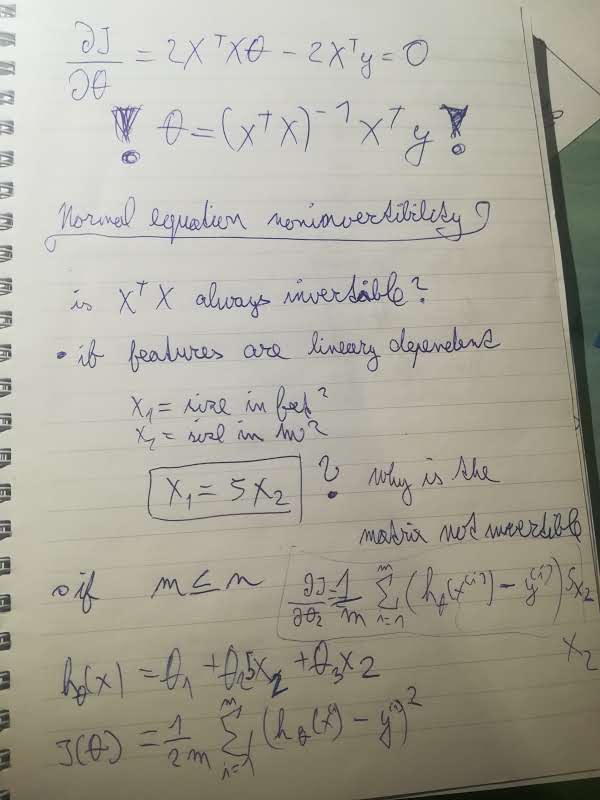 ∂J/∂θ = 2XᵀXθ - 2Xᵀy = 0
! θ = (XᵀX)⁻¹Xᵀy !
Normal equation noninvertibility
is XᵀX always invertible?
• if features are lineary dependent
x₁ = size in feet²
x₂ = size in m²
x₁ = 5x₂ ? why is the
matrix not invertible
• if m ≤ n
∂J/∂θ₂ = 1/m Σᵢ₌₁ᵐ (h_θ(x⁽ⁱ⁾) - y⁽ⁱ⁾) 5x₂
x₂
h_θ(x) = θ₁ + θ₂5x₂ + θ₃x₂
J(θ) = 1/2m Σᵢ₌₁ᵐ (h_θ(x⁽ⁱ⁾) - y⁽ⁱ⁾)²